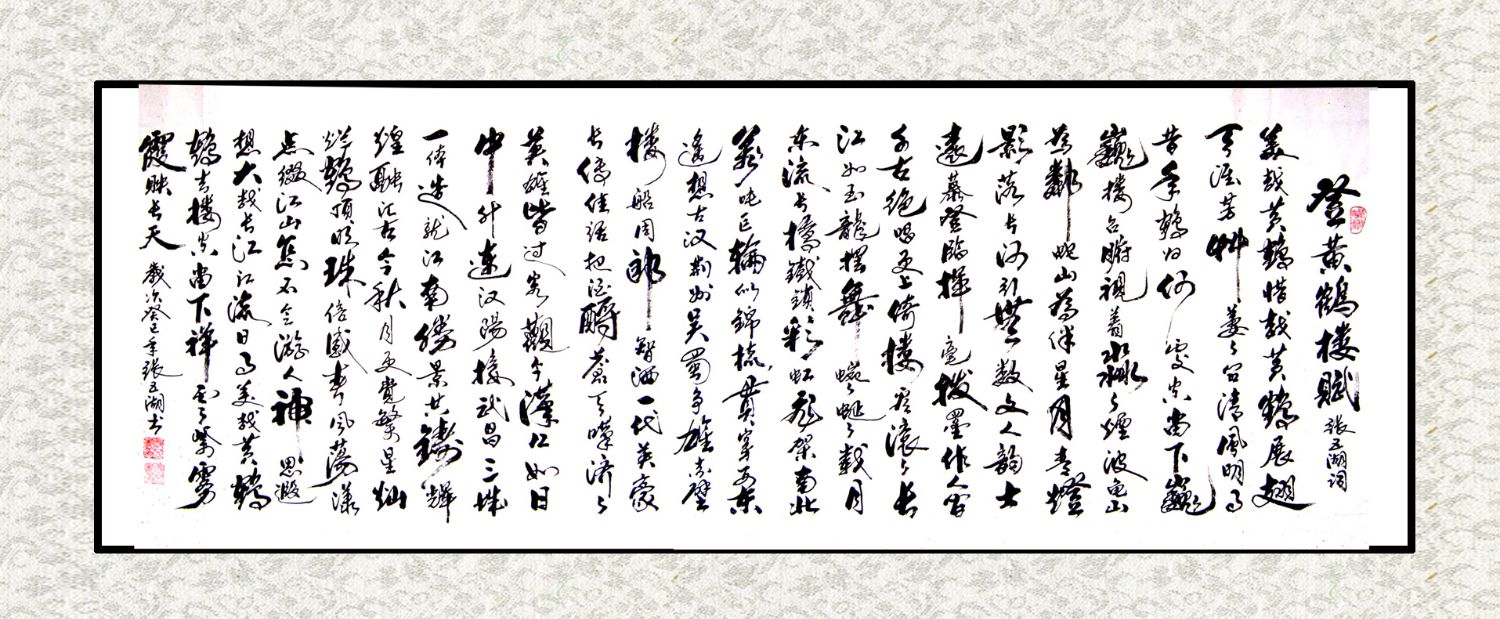 登黄鹤楼赋 张五湖词
美哉黄鹤惜哉黄鹤展翅
天涯芳草萋々留清风明月
昔年鹤归何处突兀当下巍
巍楼台俯视着水淼々烟波龟山
为邻蛇山为伴星月半灯
影落长河引无数文人韵士
远慕登临挥毫拨墨作人间
千古绝唱更上倚楼看滚々长
江如玉龙摆舞蜿々蜒々载月
东流长桥铁锁彩虹飞架南北
万吨巨轮似锦梳贯穿西东
遥想古汉荆州吴蜀争雄赤壁
楼船周郎智洒一代英豪
长传佳话把酒酹苍天叹济々
英雄皆过客观今汉江如日
中升连汉阳接武昌三城
一体造就江南胜景共铸辉
煌融汇古今秋月更觉繁星灿
烂鹤顶明珠倍感春风荡漾
点缀江山焉不令游人神思遐
想大哉长江江流日月美哉黄鹤
鹤去楼空当下祥云々紫雾
霞映长天 岁次癸巳年张五湖书